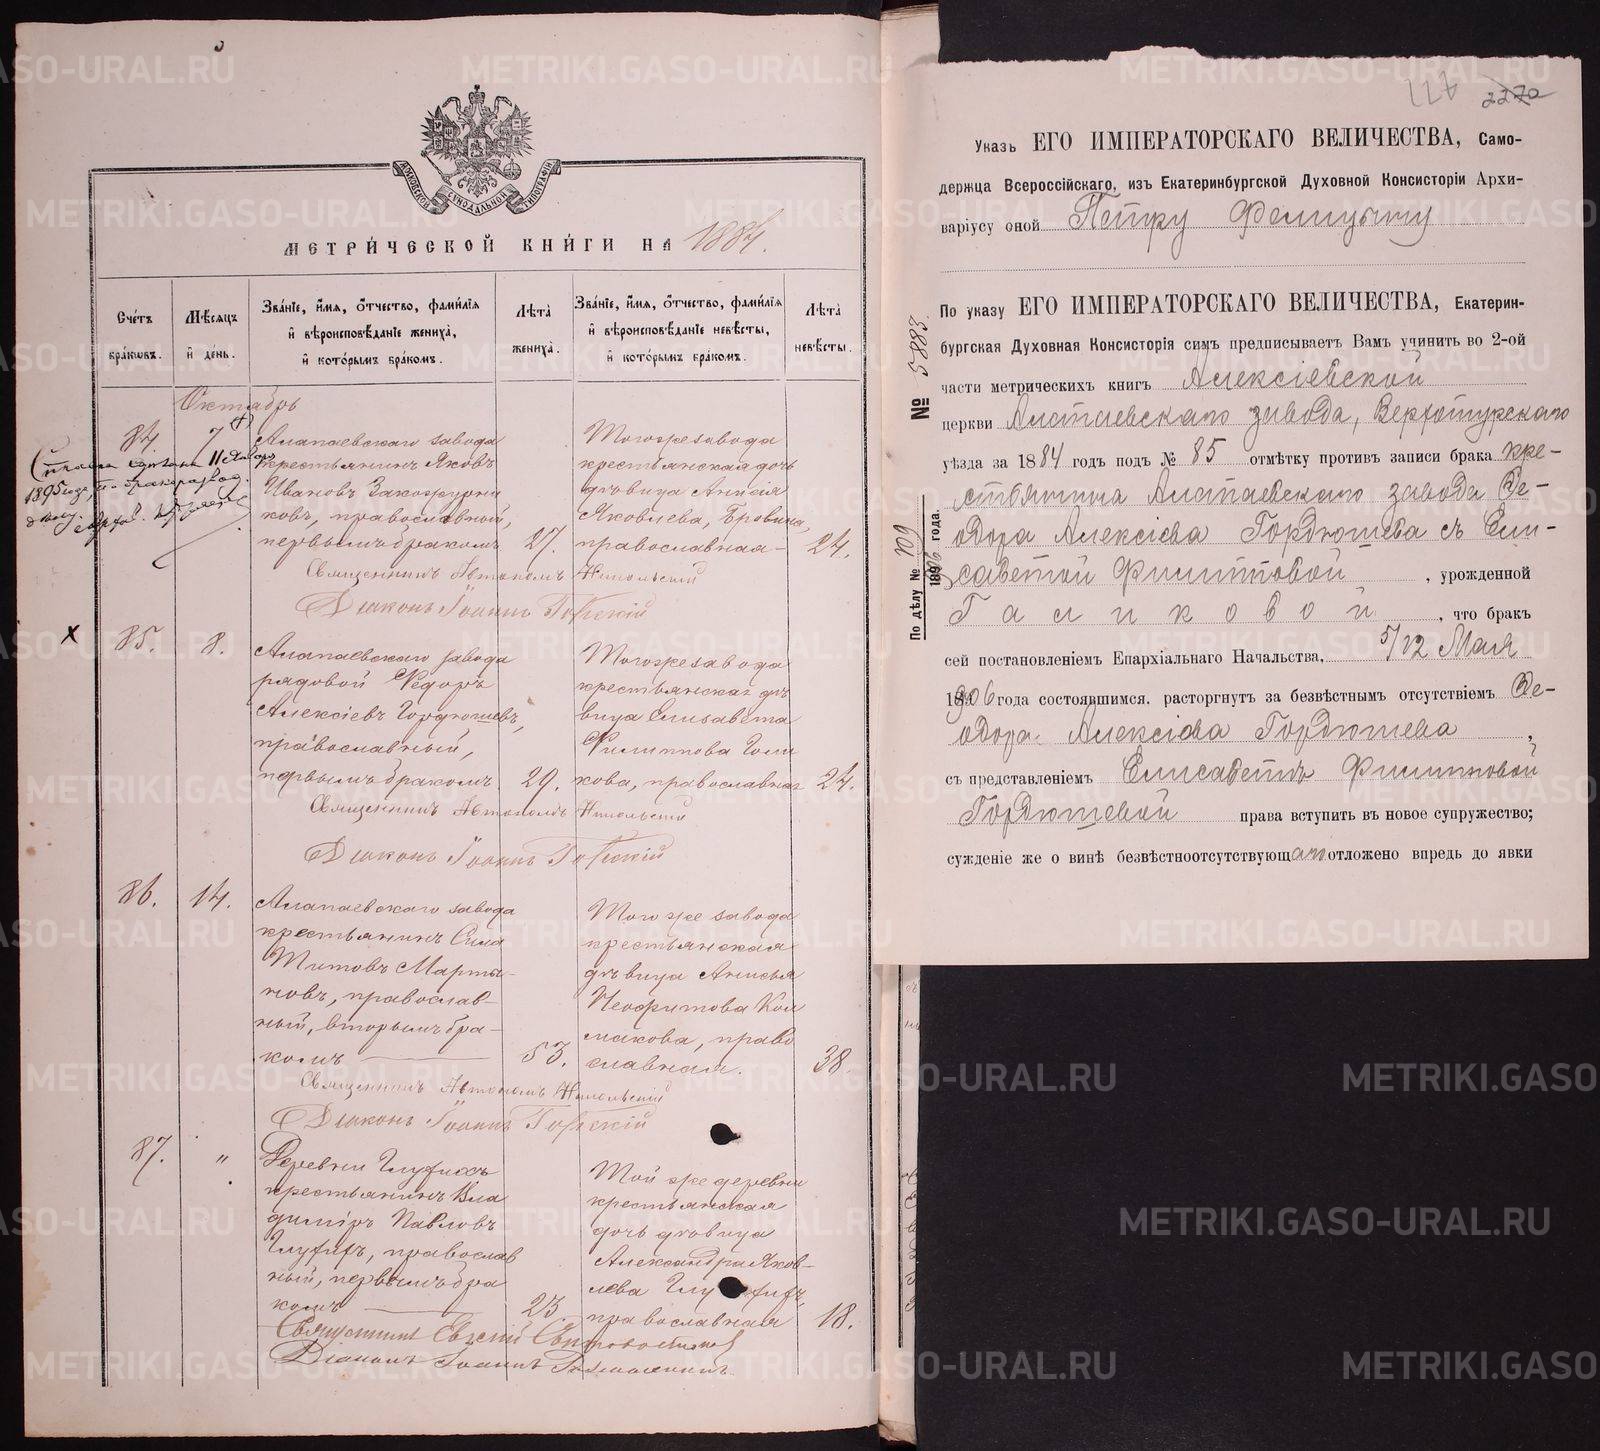 МОСКОВСКОЙ СѴНОДАЛЬНОЙ ТИПОГРАФІИ
МЕТРИ́ЧЕСКОЙ КНИ́ГИ НА 1884.
Сче́тъ бра́ковъ.
Мѣ́сяцъ и҆ де́нь.
Зва́нїе, и҆́мя, ѻ҆́тчество, фами́лїя и҆ вѣроисповѣ́данїе жениха̀, и҆ кото́рымъ бра́комъ.
Лѣ́та жениха̀.
Зва́нїе, и҆́мя, ѻ҆́тчество, фами́лїя и҆ вѣроисповѣ́данїе невѣ́сты, и҆ кото́рымъ бра́комъ.
Лѣ́та невѣ́сты.
Октябрь
84. 7
Алапаевскаго завода
крестьянинъ Яковъ
Ивановъ
ковъ, православный,
первымъ бракомъ 27.
Тогоже завода
крестьянская дочь
дѣвица Анисія
Яковлева,
православная 24.
1895 года
Священникъ Автономъ Никольскій
Діаконъ Іоаннъ
х
85. 8.
Алапаевскаго завода
рядовой Ѳедоръ
Алексіевъ Гордюшевъ,
православный,
первымъ бракомъ. 29.
Тогоже завода
крестьянская дѣ
вица Елисавета
Филиппова Гали
кова, православная 24.
Священникъ Автономъ Никольскій
Діаконъ Іоаннъ
86. 14.
Алапаевскаго завода
крестьянинъ Сила
Титовъ Марты-
новъ, православ-
ный, вторымъ бра-
комъ 53.
Того же завода
крестьянская
дѣвица Анисья
Неофитова Кол
макова, право
славная. 38.
Священникъ Автономъ Никольскій
Діаконъ Іоаннъ
87. "
Деревни Глухихъ
крестьянинъ Вла
димiръ Павловъ
Глухихъ, православ
ный, первымъ бра
комъ 23.
Той же деревни
крестьянская
дочь дѣвица
Александра Яков-
лева
православная 18.
Священникъ
Діаконъ Іоаннъ
227 227а
Указъ ЕГО ИМПЕРАТОРСКАГО ВЕЛИЧЕСТВА, Само-
держца Всероссійскаго, изъ Екатеринбургской Духовной Консисторіи Архи-
варіусу оной Петру Фелицыну
По указу ЕГО ИМПЕРАТОРСКАГО ВЕЛИЧЕСТВА, Екатерин-
бургская Духовная Консисторія симъ предписываетъ Вамъ учинить во 2-ой
части метрическихъ книгъ Алексіевской
церкви Алапаевскаго завода, Верхотурскаго
уѣзда за 1884 годъ подъ № 85 отмѣтку противъ записи брака кре-
стьянина Алапаевскаго завода Ѳе-
одора Алексіева Гордюшева съ Ели-
саветой Филипповой, урожденной
Галиковой, что бракъ
сей постановленіемъ Епархіальнаго Начальства, 5/12 Мая
1906 года состоявшимся, расторгнутъ за безвѣстнымъ отсутствіемъ Ѳе-
одора Алексіева Гордюшева,
съ представленіемъ Елисаветѣ Филипповой
Гордюшевой права вступить въ новое супружество;
сужденіе же о винѣ безвѣстноотсутствующаго отложено впредь до явки
№ 5883.
По дѣлу № 109
1906 года.
METRIKI.GASO-URAL.RU